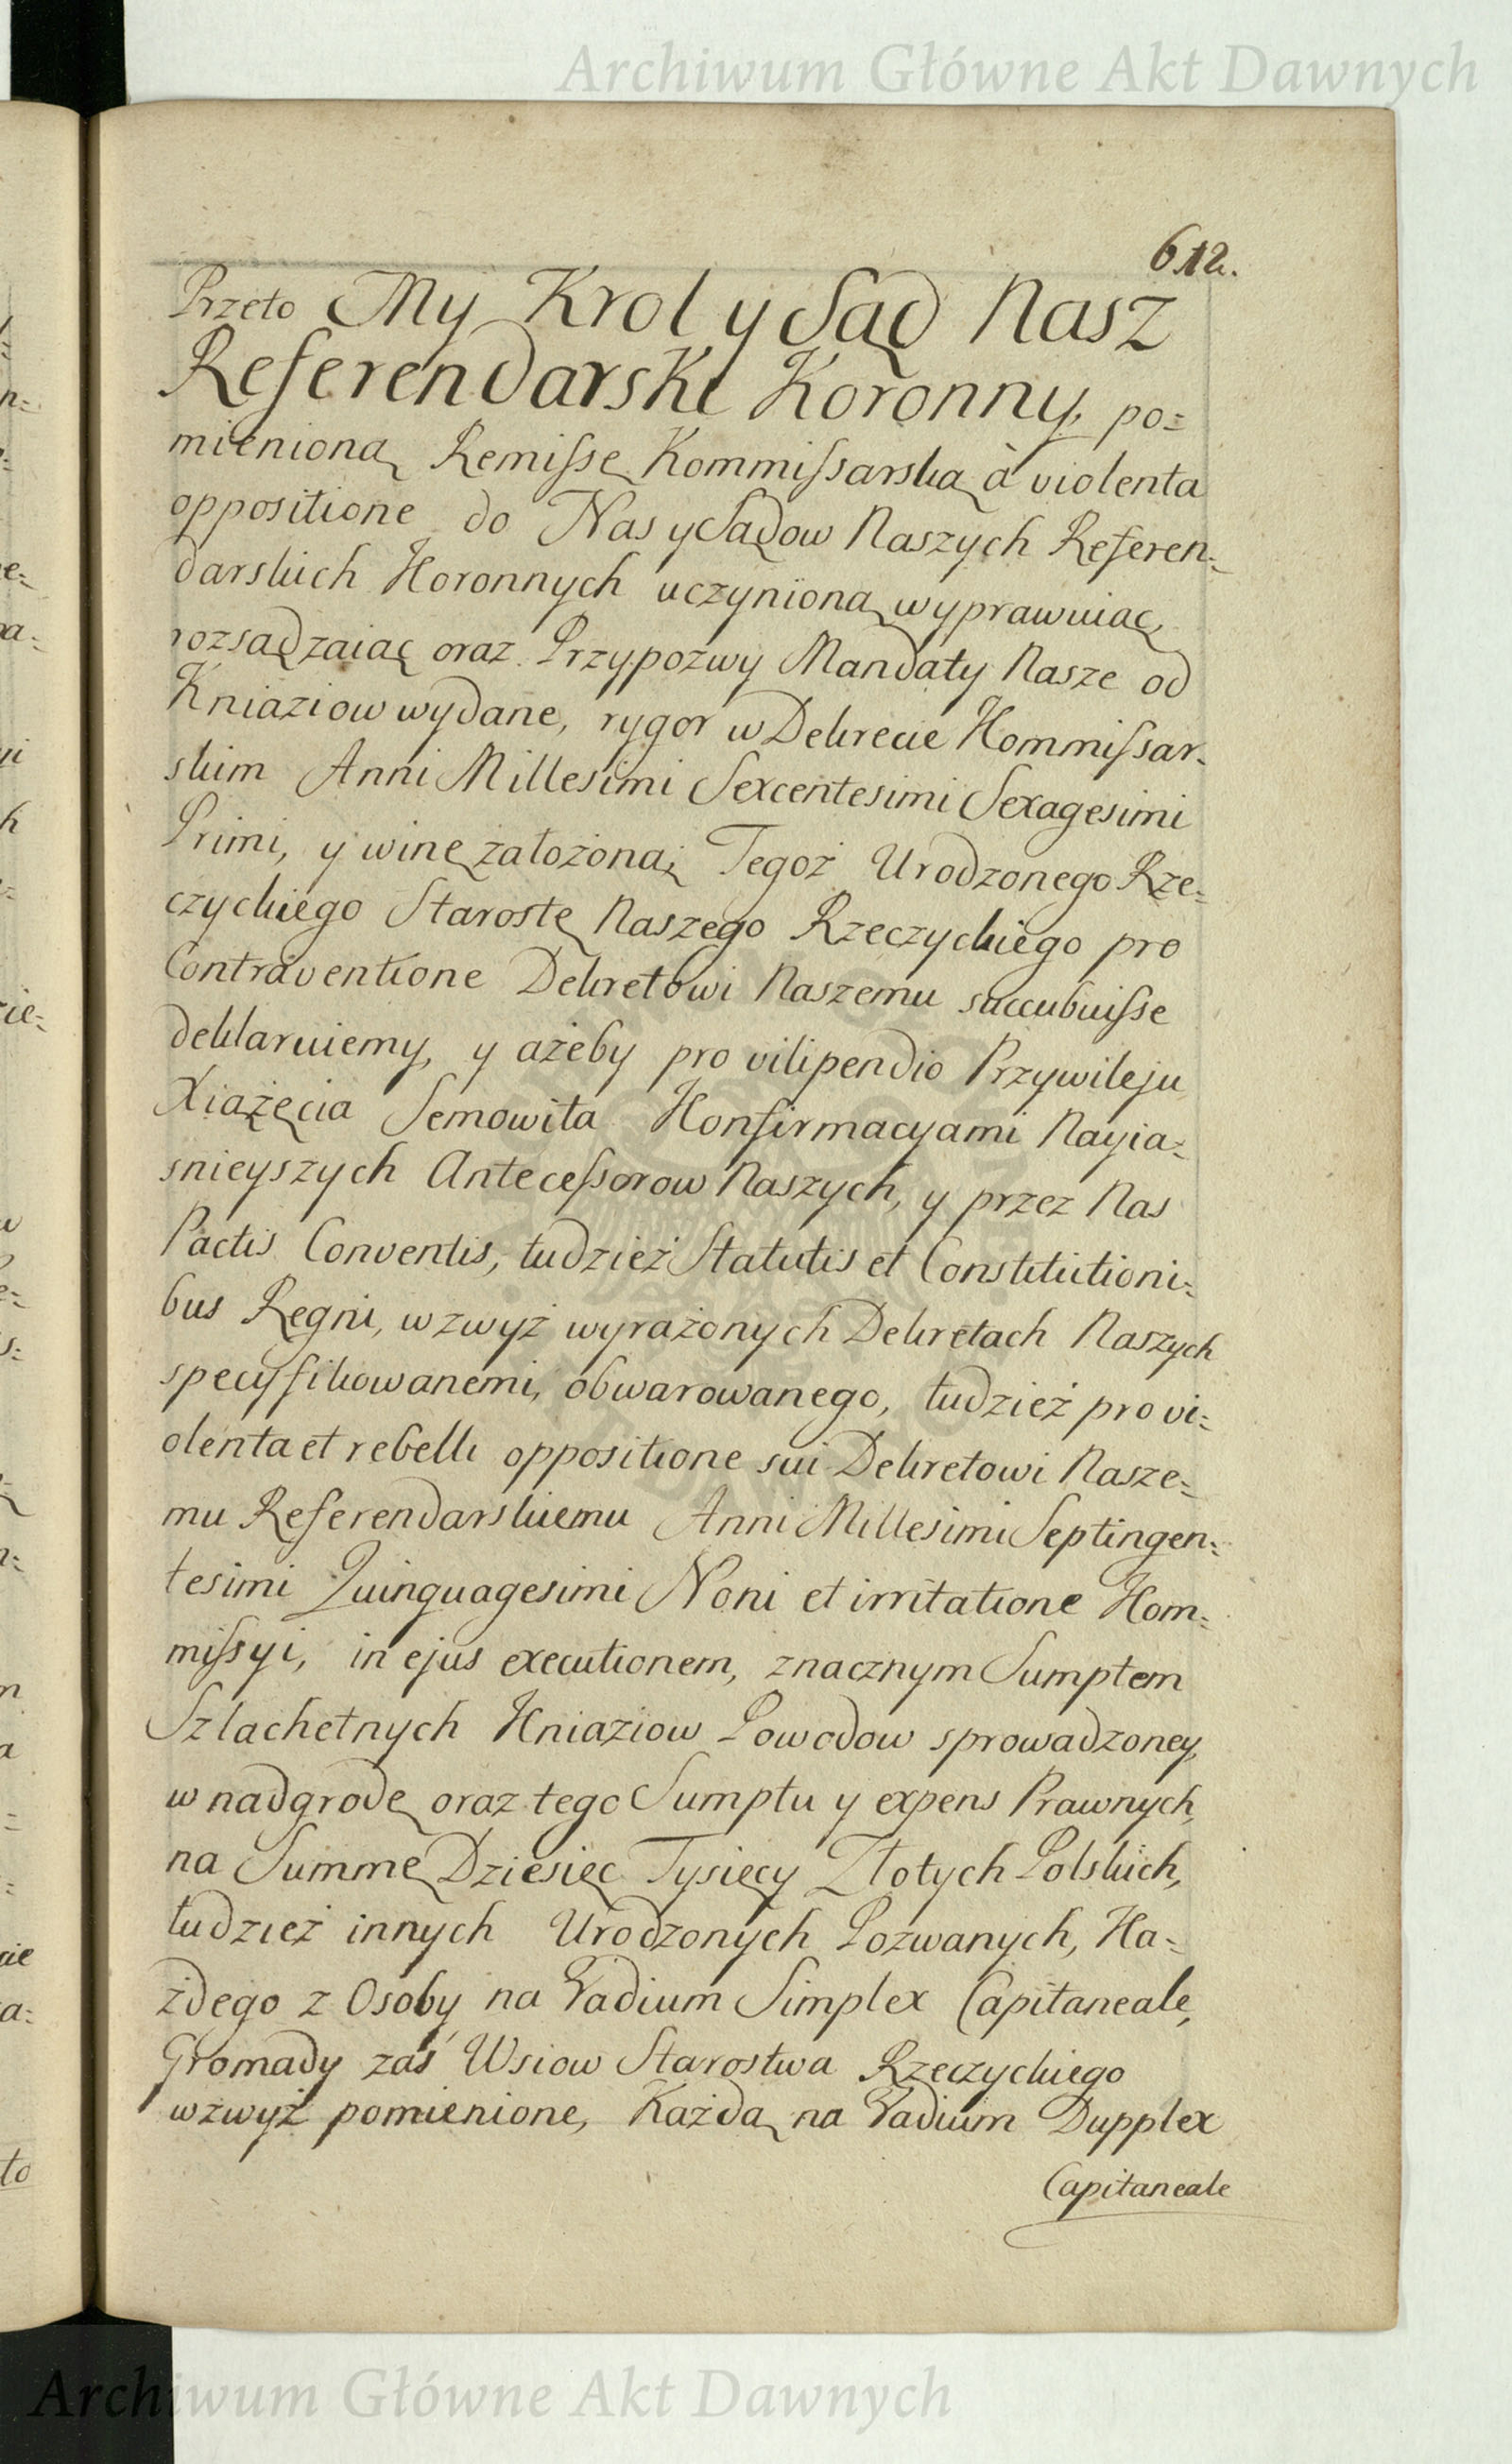 Archiwum Główne Akt Dawnych
612.
Przeto My Krol y Sąd Nasz
Referendarski Koronny, po=
mienioną Remissę Kommissarską à violenta
oppositione do Nas y Sądow Naszych Referen=
darskich Koronnych uczynioną wyprawuiąc,
rozsądzaiąc oraz Przypozwy Mandaty Nasze od
Kniaziow wydane, rygor w Dekrecie Kommissar=
skim Anni Millesimi Sexcentesimi Sexagesimi
Primi, y winę założoną; Tegoż Urodzonego Rze=
czyckiego Starostę Naszego Rzeczyckiego pro
Contraventione Dekretowi Naszemu succubuisse
deklaruiemy, y ażeby pro vilipendio Przywileju
Xiążęcia Semowita Konfirmacyami Nayia=
snieyszych Antecessorow Naszych, y przez Nas
Pactis Conventis, tudzież Statutis et Constitutioni=
bus Regni, wzwyż wyrażonych Dekretach Naszych
specyfikowanemi, obwarowanego, tudzież pro vi=
olenta et rebelli oppositione sui Dekretowi Nasze=
mu Referendarskiemu Anni Millesimi Septingen=
tesimi Quinquagesimi Noni et irritatione Kom=
missyi, in ejus executionem, znacznym Sumptem
Szlachetnych Kniaziow Powodow sprowadzoney,
w nadgrodę oraz tego Sumptu y expens Prawnych,
na Summę Dziesięc Tysięcy Złotych Polskich,
tudzież innych Urodzonych Pozwanych, Ka=
żdego z Osoby na Vadium Simplex Capitaneale,
Gromady zaś Wsiow Starostwa Rzeczyckiego
wzwyż pomienione, Każdą na Vadium Dupplex
Capitaneale
Archiwum Główne Akt Dawnych